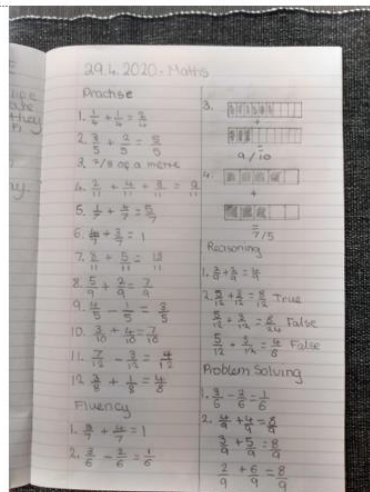 29.4.2020 - Maths
Practise
1. 1/4 + 1/4 = 2/4
2. 3/5 + 2/5 = 5/5
3. 7/8 of a metre
5. 1/7 + 4/7 = 5/7
6. 4/7 + 3/7 = 1
8. 5/9 + 2/9 = 7/9
9. 4/5 - 1/5 = 3/5
10. 3/10 + 4/10 = 7/10
11. 7/12 - 3/12 = 4/12
12. 3/8 + 1/8 = 4/8
Fluency
1. 3/7 + 4/7 = 1
2. 3/6 - 2/6 = 1/6
3.
+
=
9/10
4.
+
=
7/5
Reasoning
2. 5/12 + 3/12 = 8/12 True
5/12 + 3/12 = 8/24 False
False
Problem Solving
1. 3/6 - 2/6 = 1/6
2. 4/9 + 4/9 = 8/9
3/9 + 5/9 = 8/9
2/9 + 6/9 = 8/9